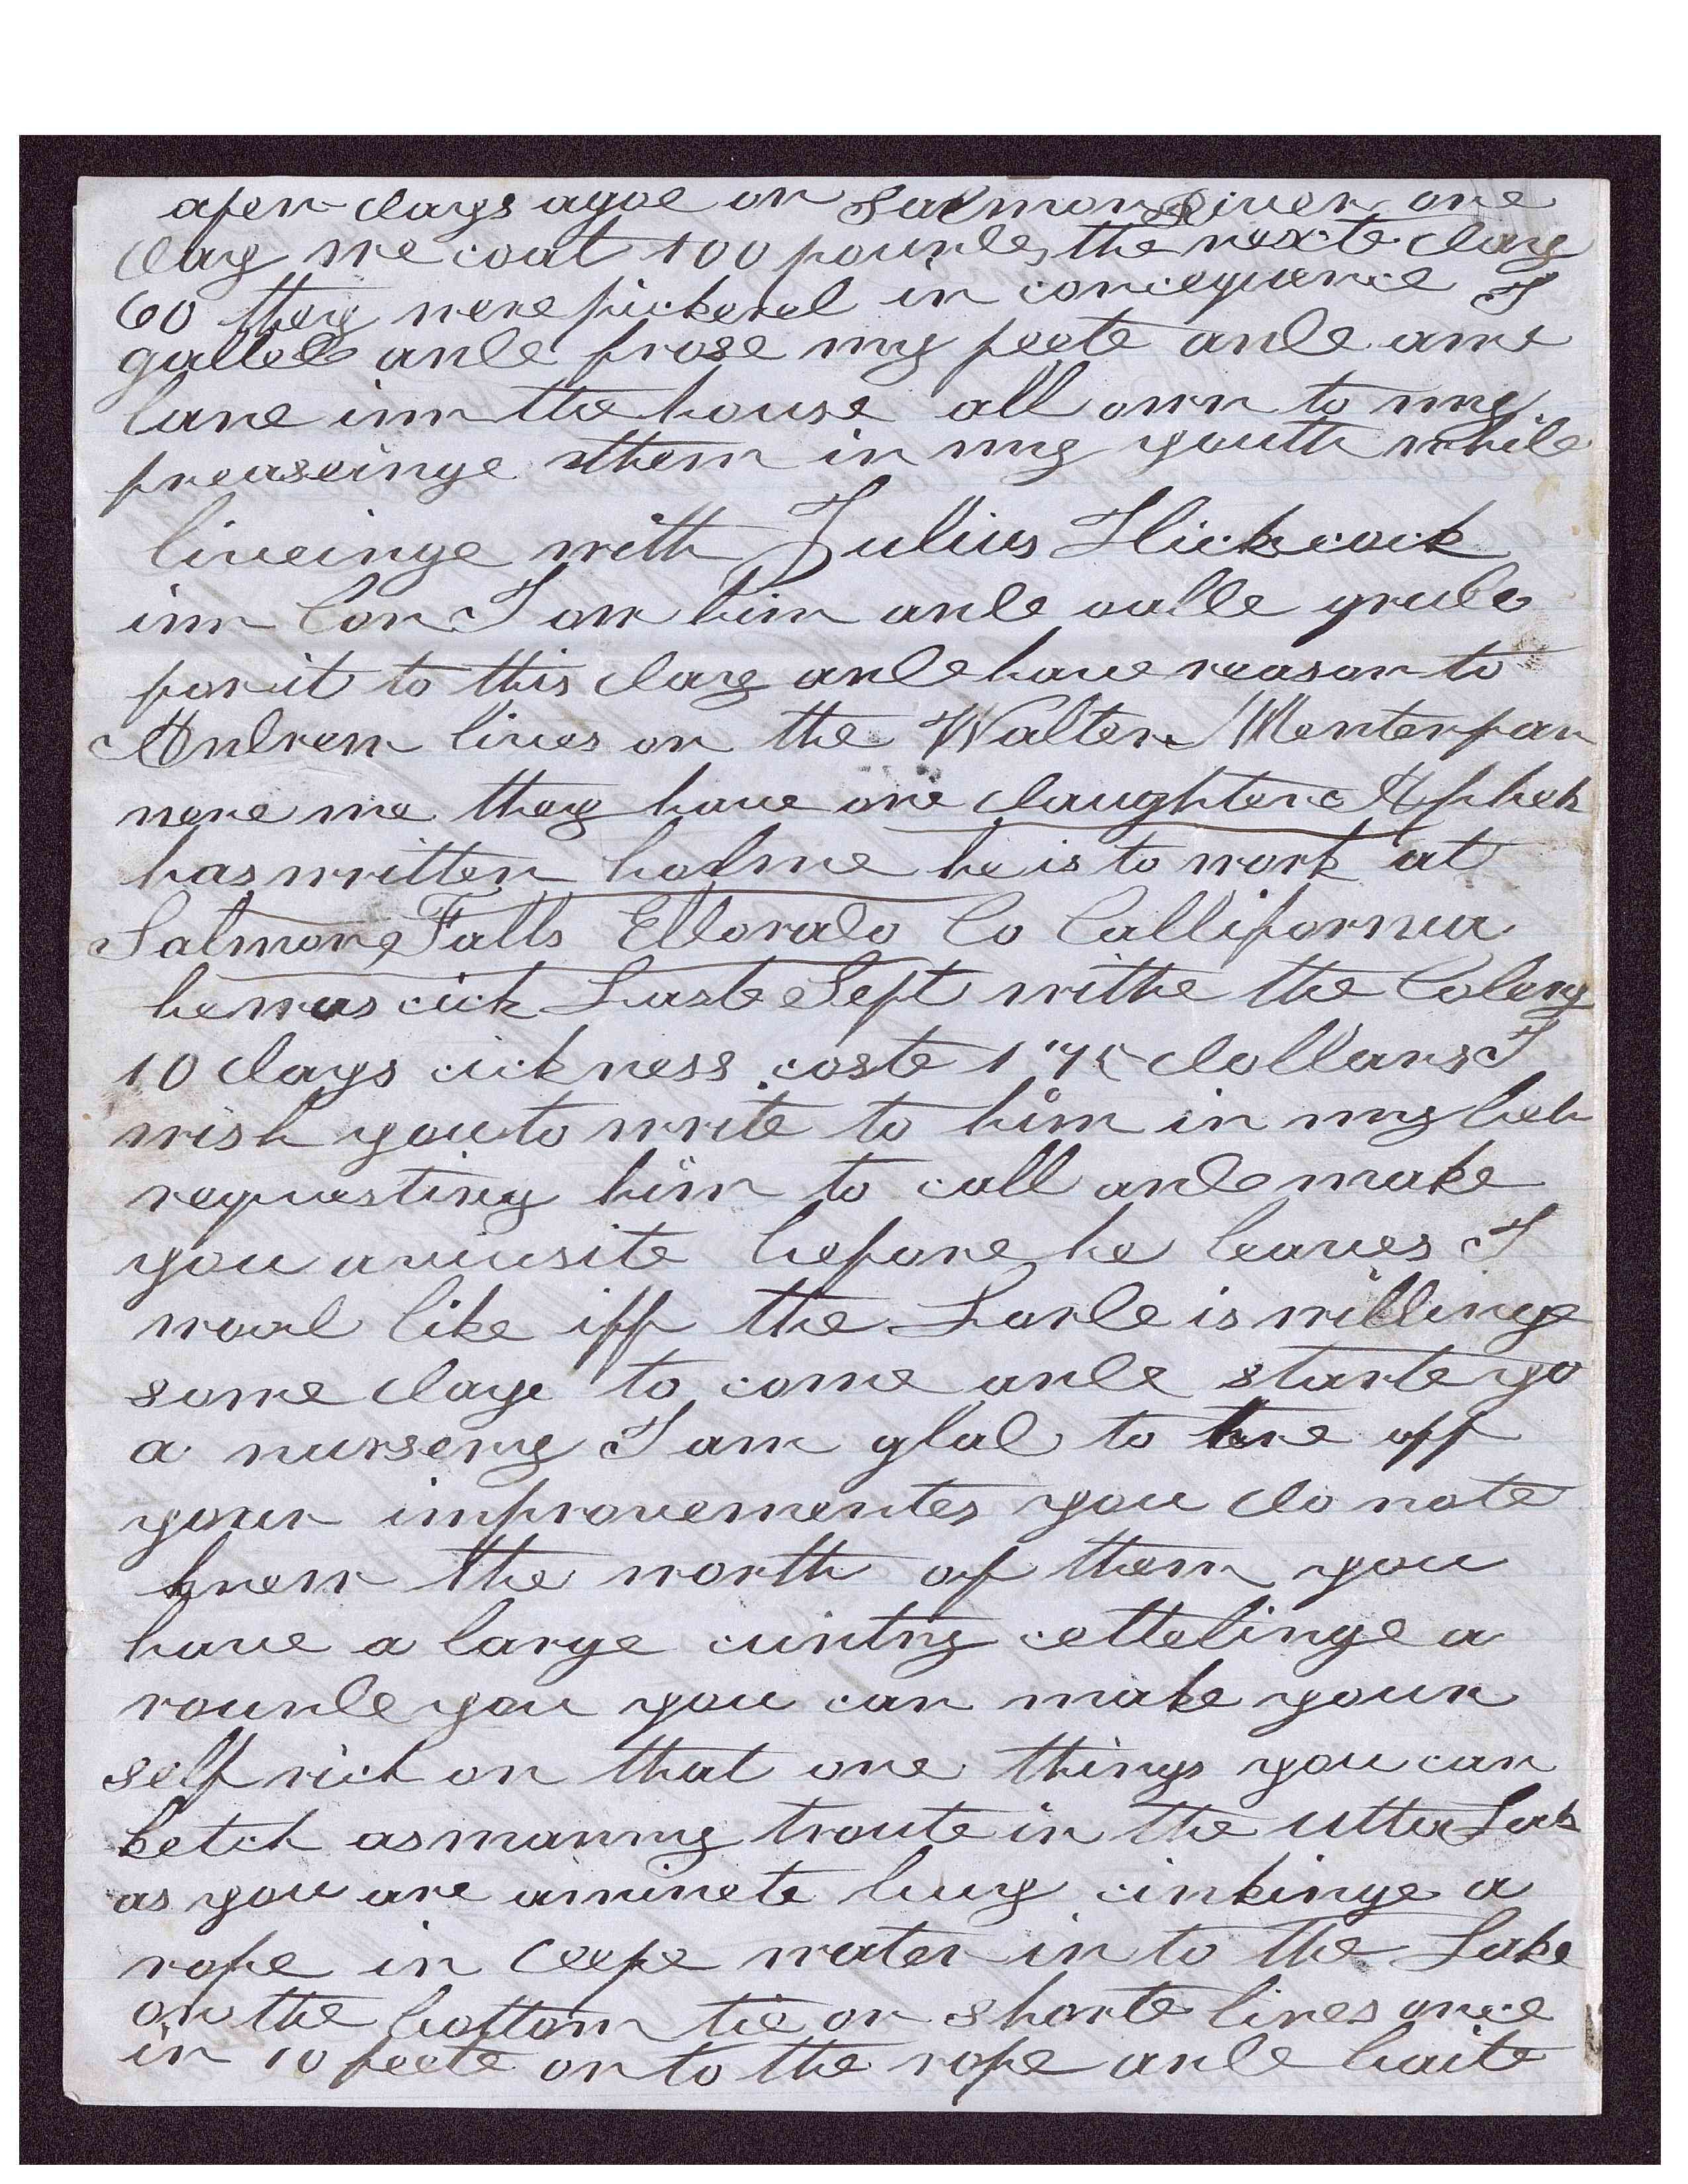 afew days agoe on Salmon River one
day we coat 100 pounde, the nexte day
60 they were pickerel in conciequence I
galled ande frose my feete ande ame
lame inn the house all own to my
freaseinge them in my youth while
liveinge with Julius Hickcock
inn Con I ow him ande oalde grude
for it to this day and have reason to
Andrew lives on the Walter Wenter far
nere me they have one daughter Aphek
has written holme he is to work at
Salmon Falls Eldorado Co Callifornia
he was cick Laste Sept withe the Colery
10 days cickness coste 175 dollars I
wish you to write to him in my beh
requesting him to call and make
you a viusite before he leaves I
wood like iff the Lorde is willinge
some daye to come ande starte yo
a nursery I am glad to here off
your improvementes you do note
know the worth of them you
have a large cuntry cettelinge a
rounde you you can make your
self rich on that one things you can
ketch as manny troute in the Utta Lak
as you are aminete buy cinkinge a
rope in deepe water in to the Lake
on the bottom tie on shorte lines once
in 10 feete on to the rope ande baite